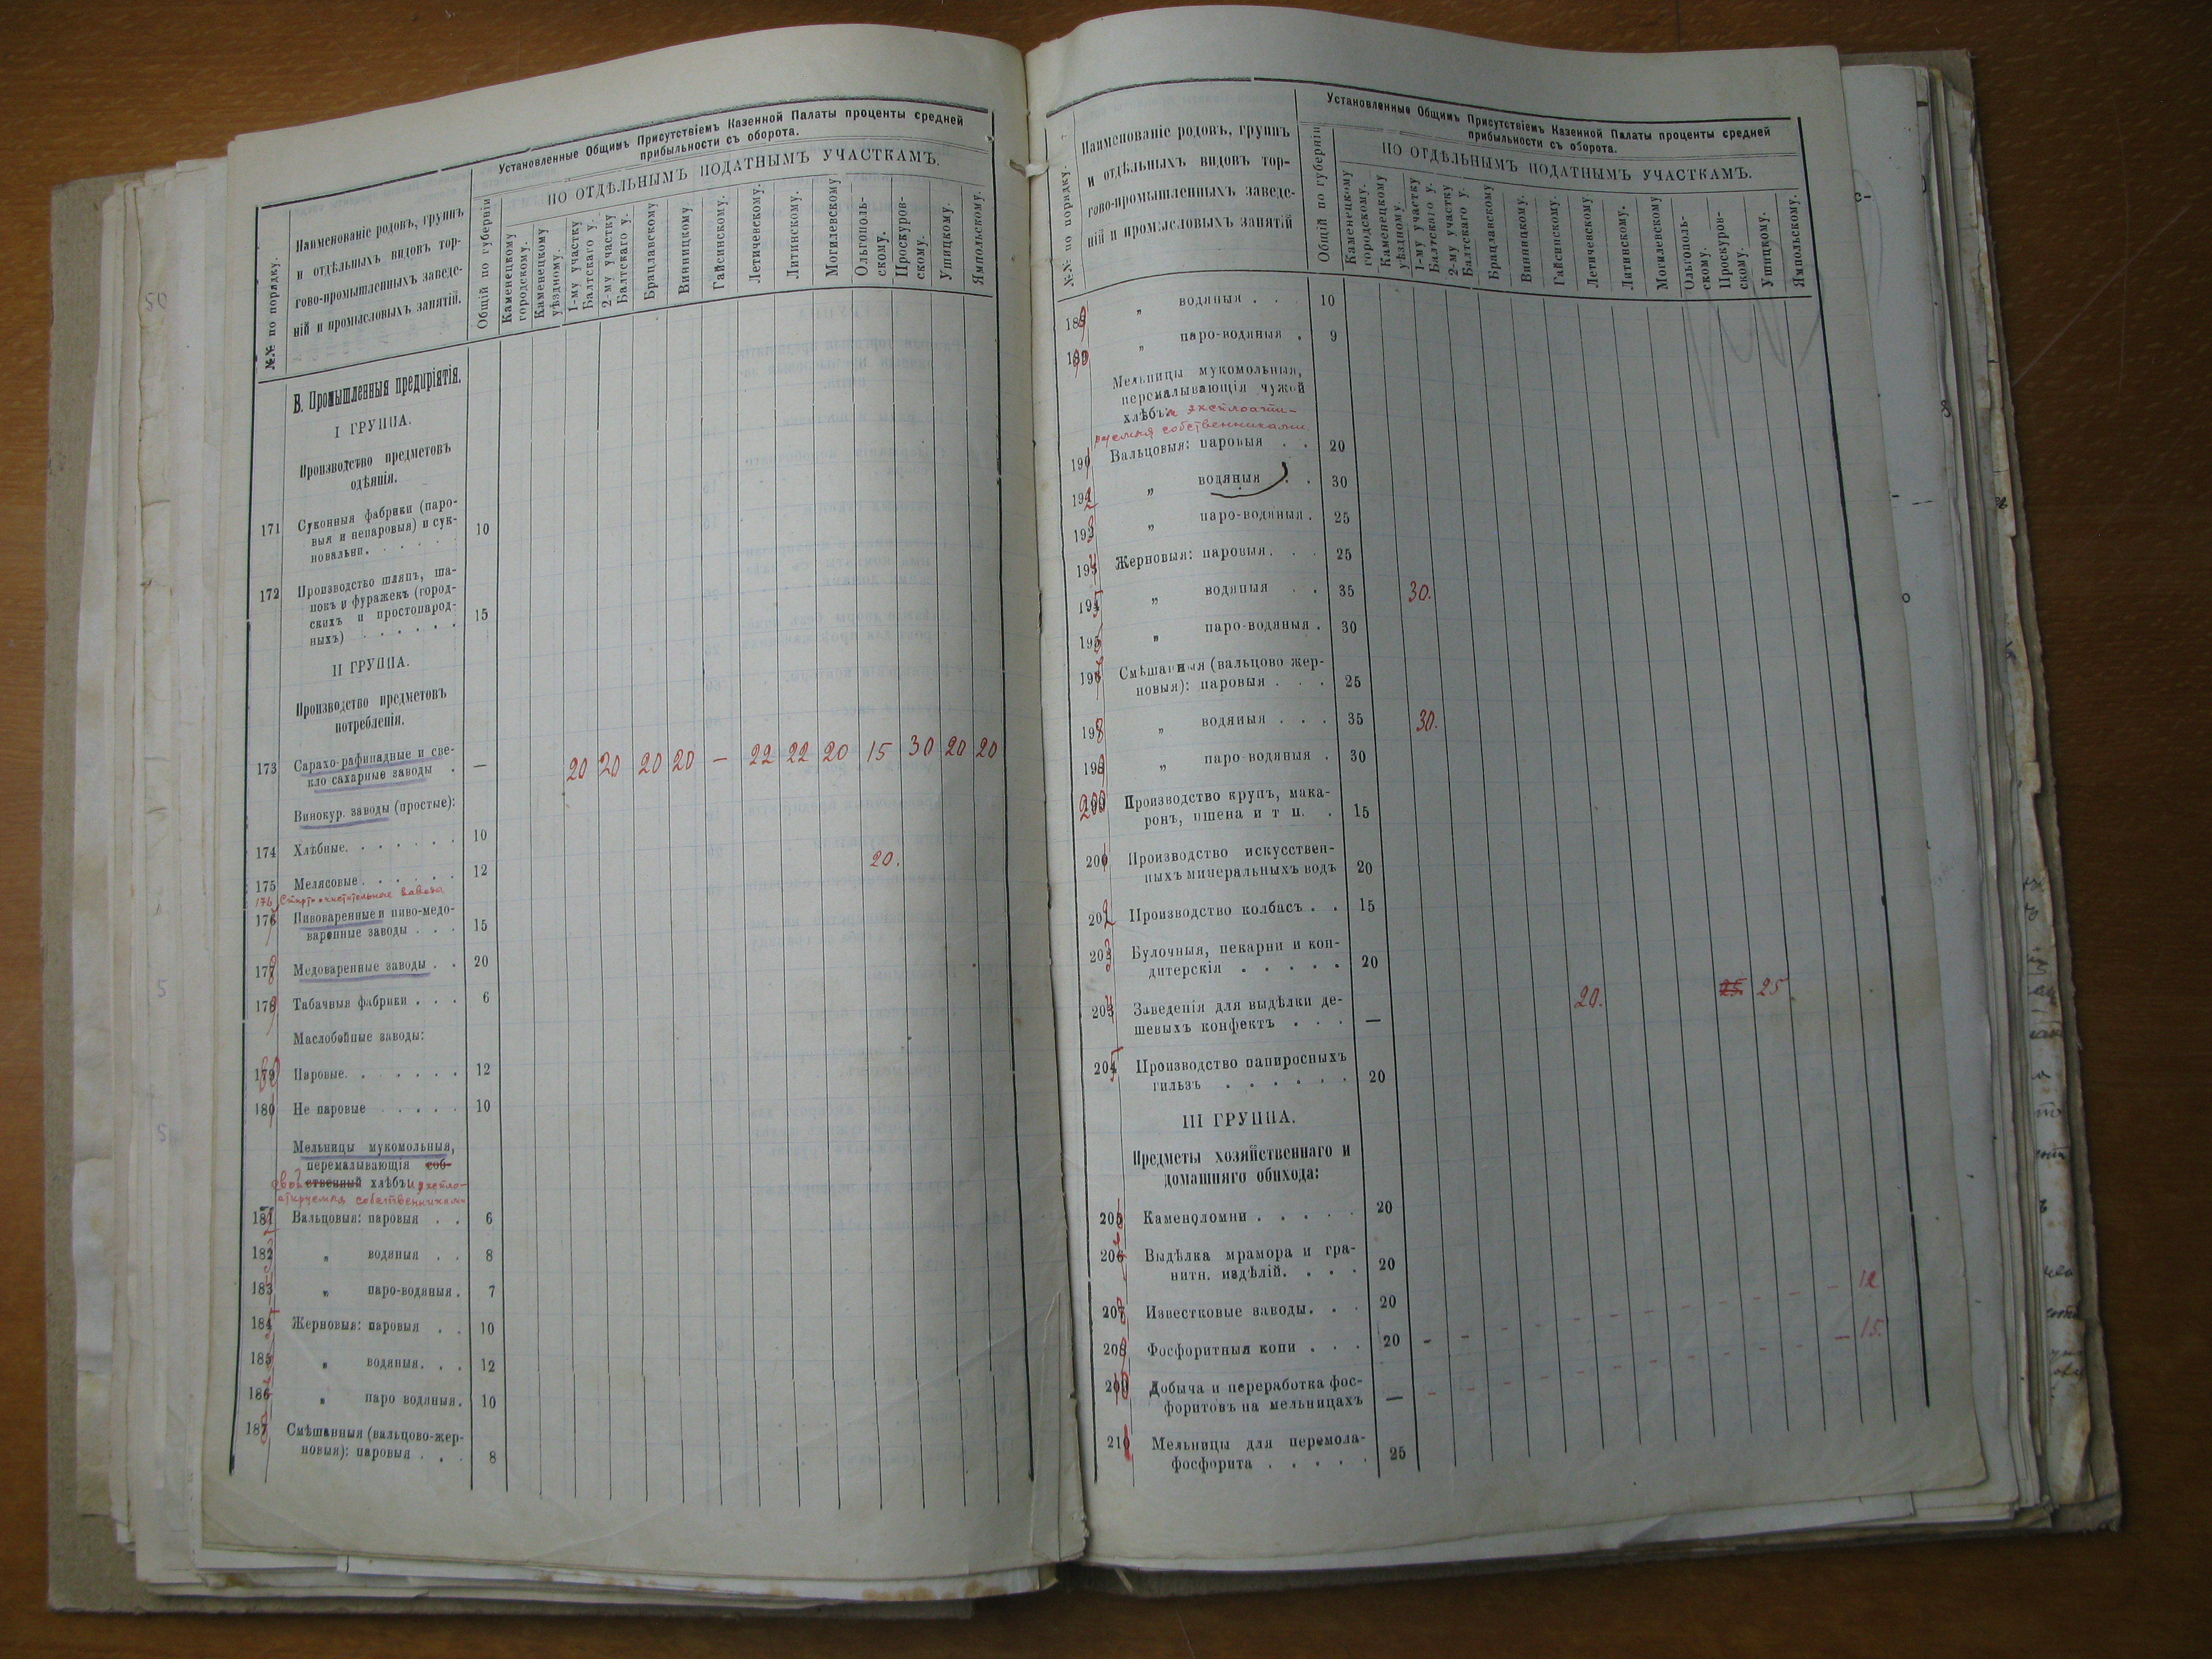 Установленные Общимъ Присутствіемъ Казенной Палаты проценты средней
прибыльности съ оборота.
ПО ОТДѢЛЬНЫМЪ ПОДАТНЫМЪ УЧАСТКАМЪ.
№№ по порядку.
Наименованіе родовъ, группъ
и отдѣльныхъ видовъ тор-
гово-промышленныхъ заведе-
ній и промысловыхъ занятій.
Общій по губерніи
Каменецкому
городскому.
Каменецкому
уѣздному.
1-му участку
Балтскаго у.
2-му участку
Балтскаго у.
Брацлавскому
Винницкому
Гайсинскому.
Летичевскому.
Литинскому.
Могилевскому
Ольгополь-
скому.
Проскуров-
скому.
Ушицкому.
Ямпольскому.
В. Промышленныя предпріятія.
I ГРУППА.
Производство предметовъ
одѣянія.
171 Суконныя фабрики (паро-
выя и непаровыя) и сук-
новальни. 10
172 Производство шляпъ, ша-
покъ и фуражекъ (город-
скихъ и простонарод-
ныхъ) 15
II ГРУППА.
Производство предметовъ
потребленія.
173 Сарахо-рафинадные и све-
кло сахарные заводы . — 20 20 20 20 — 22 22 20 15 30 20 20
Винокур. заводы (простые):
174 Хлѣбные. 10
175 Мелясовые. 12 20.
176 Спиртоочистительные завода
177 Пивоваренные и пиво-медо-
варенные заводы . . . 15
178 Медоваренные заводы . . 20
179 Табачныя фабрики . . . 6
Маслобойные заводы:
180 Паровые. 12
181 Не паровые 10
Мельницы мукомольныя,
перемалывающія соб-
свой ственный хлѣбъ и экспло-
атируемыя собственниками
182 Вальцовыя: паровыя . . 6
183 „ водяныя . . 8
184 „ паро-водяныя . 7
185 Жерновыя: паровыя . . 10
186 „ водяныя. . . 12
187 „ паро водяныя. 10
188 Смѣшанныя (вальцово-жер-
новыя): паровыя . . . 8
Установленные Общимъ Присутствіемъ Казенной Палаты проценты средней
прибыльности съ оборота.
ПО ОТДѢЛЬНЫМЪ ПОДАТНЫМЪ УЧАСТКАМЪ.
№№ по порядку.
Наименованіе родовъ, группъ
и отдѣльныхъ видовъ тор-
гово-промышленныхъ заведе-
ній и промысловыхъ занятій
Общій по губерніи
Каменецкому
городскому.
Каменецкому
уѣздному.
1-му участку
Балтскаго у.
2-му участку
Балтскаго у.
Брацлавскому
Винницкому.
Гайсинскому.
Летичевскому
Литинскому.
Могилевскому
Ольгополь-
скому.
Проскуров-
скому.
Ушицкому.
Ямпольскому.
189 „ водяныя . . 10
190 „ паро-водяныя . 9
Мельницы мукомольныя,
перемалывающія чужой
хлѣбъ и эксплоати-
руемыя собственниками.
191 Вальцовыя: паровыя . . 20
192 „ водяныя . . 30
193 „ паро-водяныя . 25
194 Жерновыя: паровыя. . . 25
195 „ водяныя . . 35 30.
196 „ паро-водяныя . 30
197 Смѣшанныя (вальцово жер-
новыя): паровыя . . . 25
198 „ водяныя . . . 35 30.
199 „ паро-водяныя . 30
200 Производство крупъ, мака-
ронъ, пшена и т п. . 15
201 Производство искусствен-
ныхъ минеральныхъ водъ 20
202 Производство колбасъ . . 15
203 Булочныя, пекарни и кон-
дитерскія . . . . . 20
204 Заведенія для выдѣлки де-
шевыхъ конфектъ . . . — 20. 25. 25
205 Производство папиросныхъ
гильзъ . . . . . . 20
III ГРУППА.
Предметы хозяйственнаго и
домашняго обихода:
206 Каменоломни . . . . . 20
207 Выдѣлка мрамора и гра-
нитн. издѣлій. . . . 20
208 Известковые заводы. . . 20
209 Фосфоритныя копи . . . 20 - - - - - - - - - - - - 12
210 Добыча и переработка фос-
форитовъ на мельницахъ — - - - - - - - - - - - - 15.
211 Мельницы для перемола-
фосфорита . . . . . 25